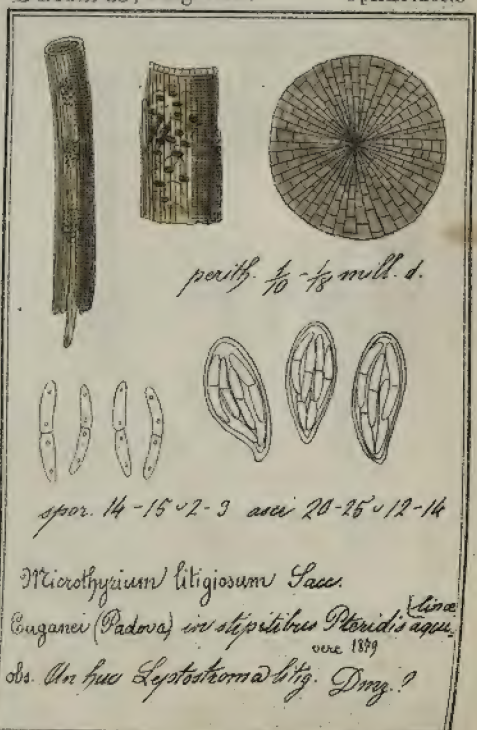 perith. 1/10 - 1/18 mill. d.
spor. 14-15 ᴗ 2-3 asci 20-25 ᴗ 12-14
Microthyrium litigiosum Sacc.
Euganei (Padova) in stipitibus Pteridis aqui-
[linæ
vere 1879
obs. An huc Leptostroma litig. Dmz.?